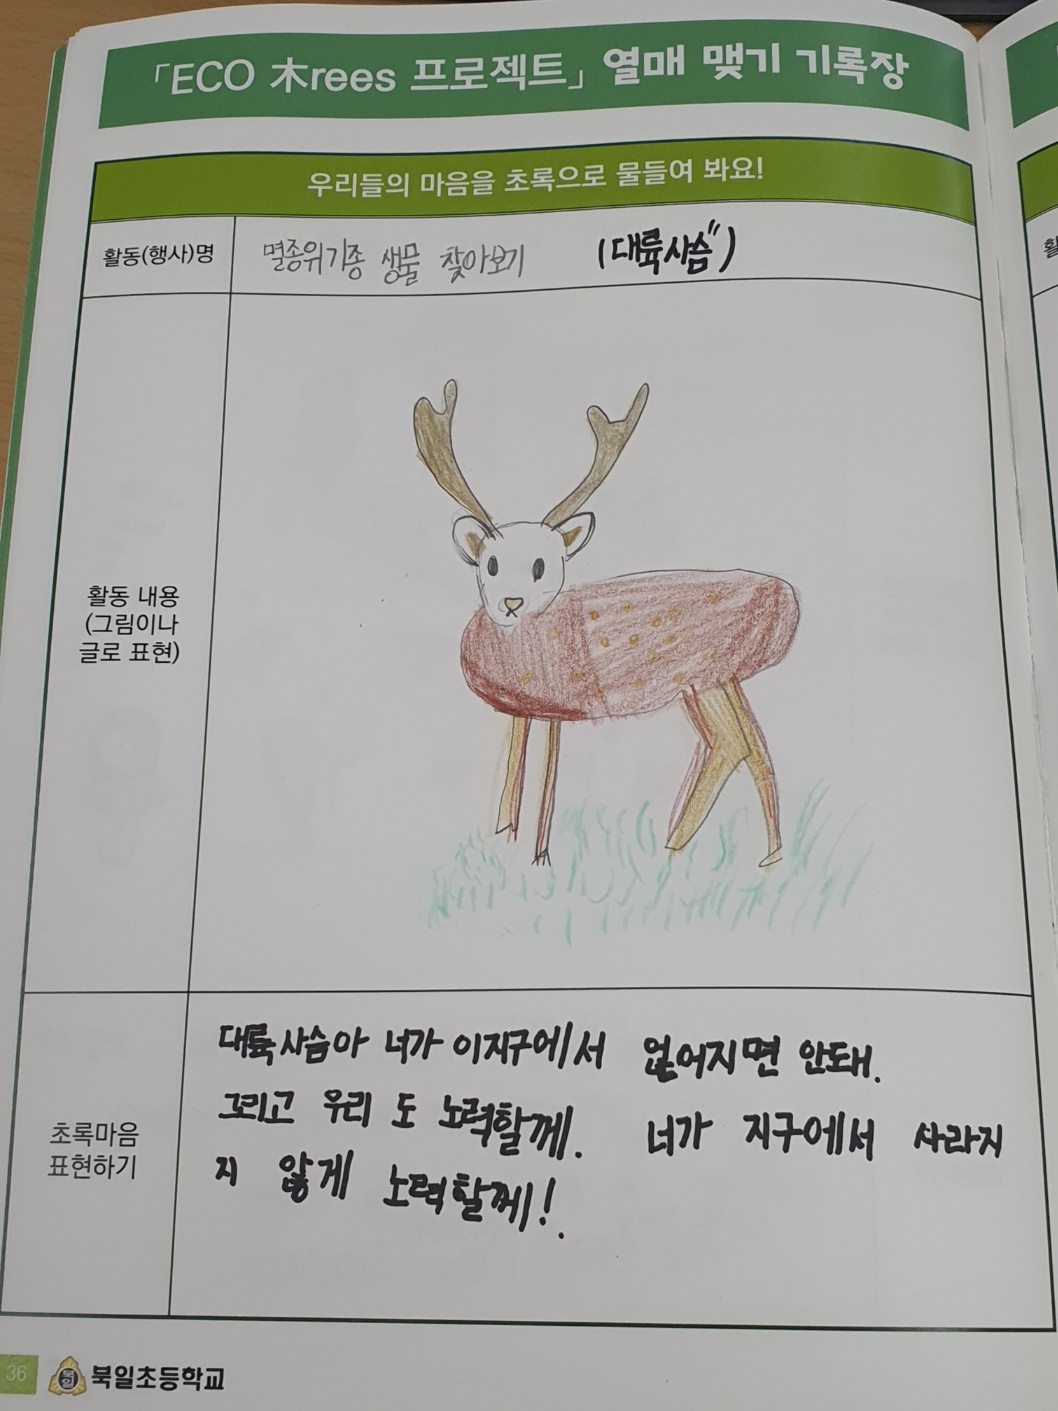 「ECO 木rees 프로젝트」 열매 맺기 기록장
우리들의 마음을 초록으로 물들여 봐요!
활동(행사)명
멸종위기종 생물 찾아보기 (대륙사슴")
활동 내용
(그림이나
글로 표현)
초록마음
표현하기
대륙사슴아 너가 이지구에서 없어지면 안돼.
그리고 우리 도 노력할께. 너가 지구에서 사라지
지 않게 노력할께!.
36 북일초등학교